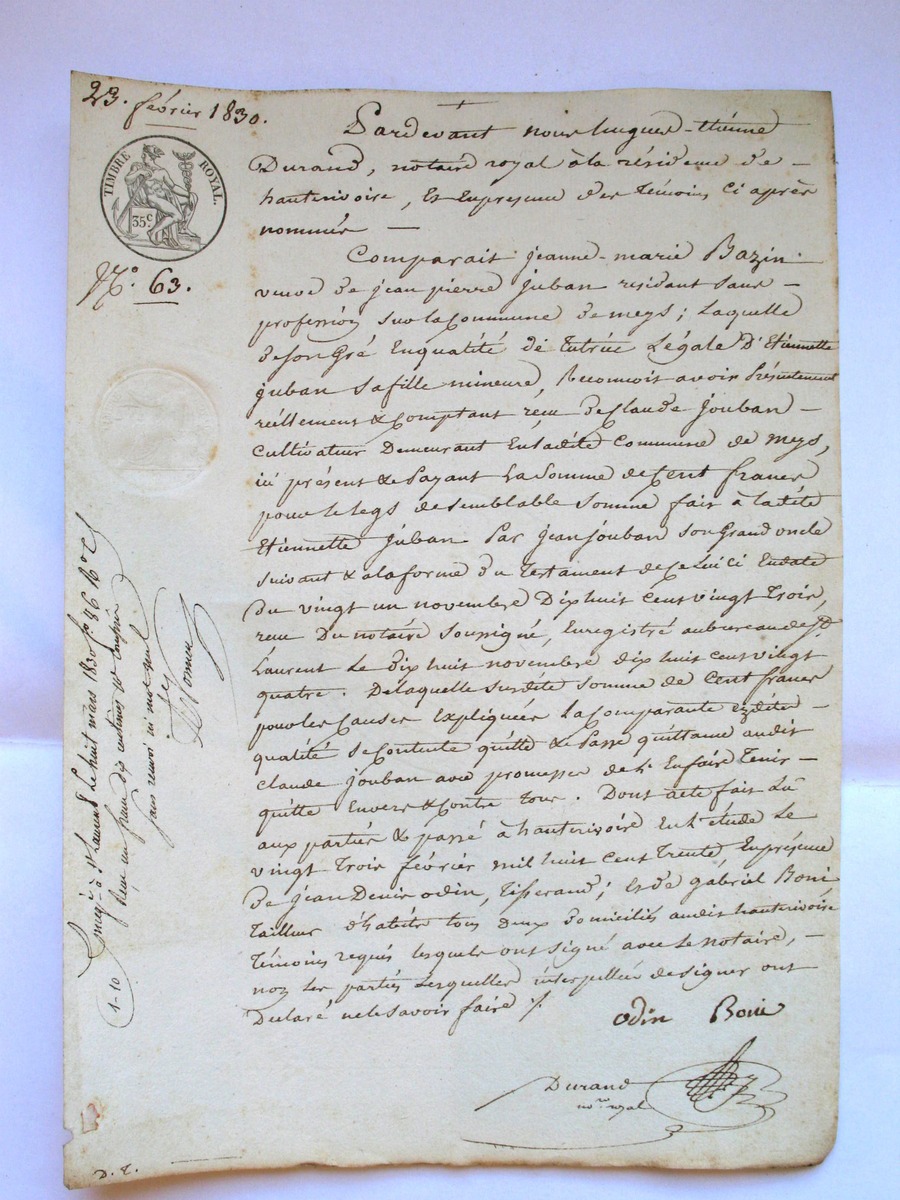 23. février 1830.
TIMBRE ROYAL.
35.c
N.o 63.
Pardevant nous hugues-étienne
Durand, notaire royal à la résidence de
hauterivoire, Et Enprésence des Témoins ci après
nommés —
Comparait jeanne-marie Bazin
veuve de jean pierre juban résidant sans
profession sur la Commune de meys; Laquelle
de son Gré Enqualité de Tutrice Légale D'Etiennette
juban sa fille mineure, Reconnoit avoir Présentement
réellement & Comptant reçu de Claude jouban
Cultivateur Demeurant En ladite Commune de meys,
ici présent & Payant La Somme de Cent francs
pour le legs de semblable Somme fait à ladite
Etiennette juban Par jean jouban son Grand oncle
suivant & à la forme du Testament de Celui ci Endate
Du vingt un novembre Dix huit Cent vingt Trois,
reçu Du notaire soussigné, Enregistré au bureau de St.
Laurent Le dix huit novembre dix huit Cent vingt
quatre. De laquelle susdite somme de Cent francs
pour les Causes Expliquées La Comparante
qualité se Contente quitte & Passe quittance audit
Claude jouban avec promesse de L'En faire Tenir
quitte Envers & Contre Tous. Dont acte fait Lû
aux parties & passé à hauterivoire En L'étude Le
vingt Trois février mil huit Cent Trente, En présence
de jean Denis odin, Tisserand; Et de gabriel Boni
Tailleur d'habits tous deux domiciliés audit hauterivoire
Témoins requis lesquels ont signé avec le notaire,
non les parties lesquelles interpellées de signer ont
Déclaré ne le savoir faire ./.
odin Boni
Durand
nore royal
Enregé à St Laurent Le huit mars 1830 fo. 86
Reçu un franc dix centimes
sans renvoi ni mot nul
1-10
D. E.